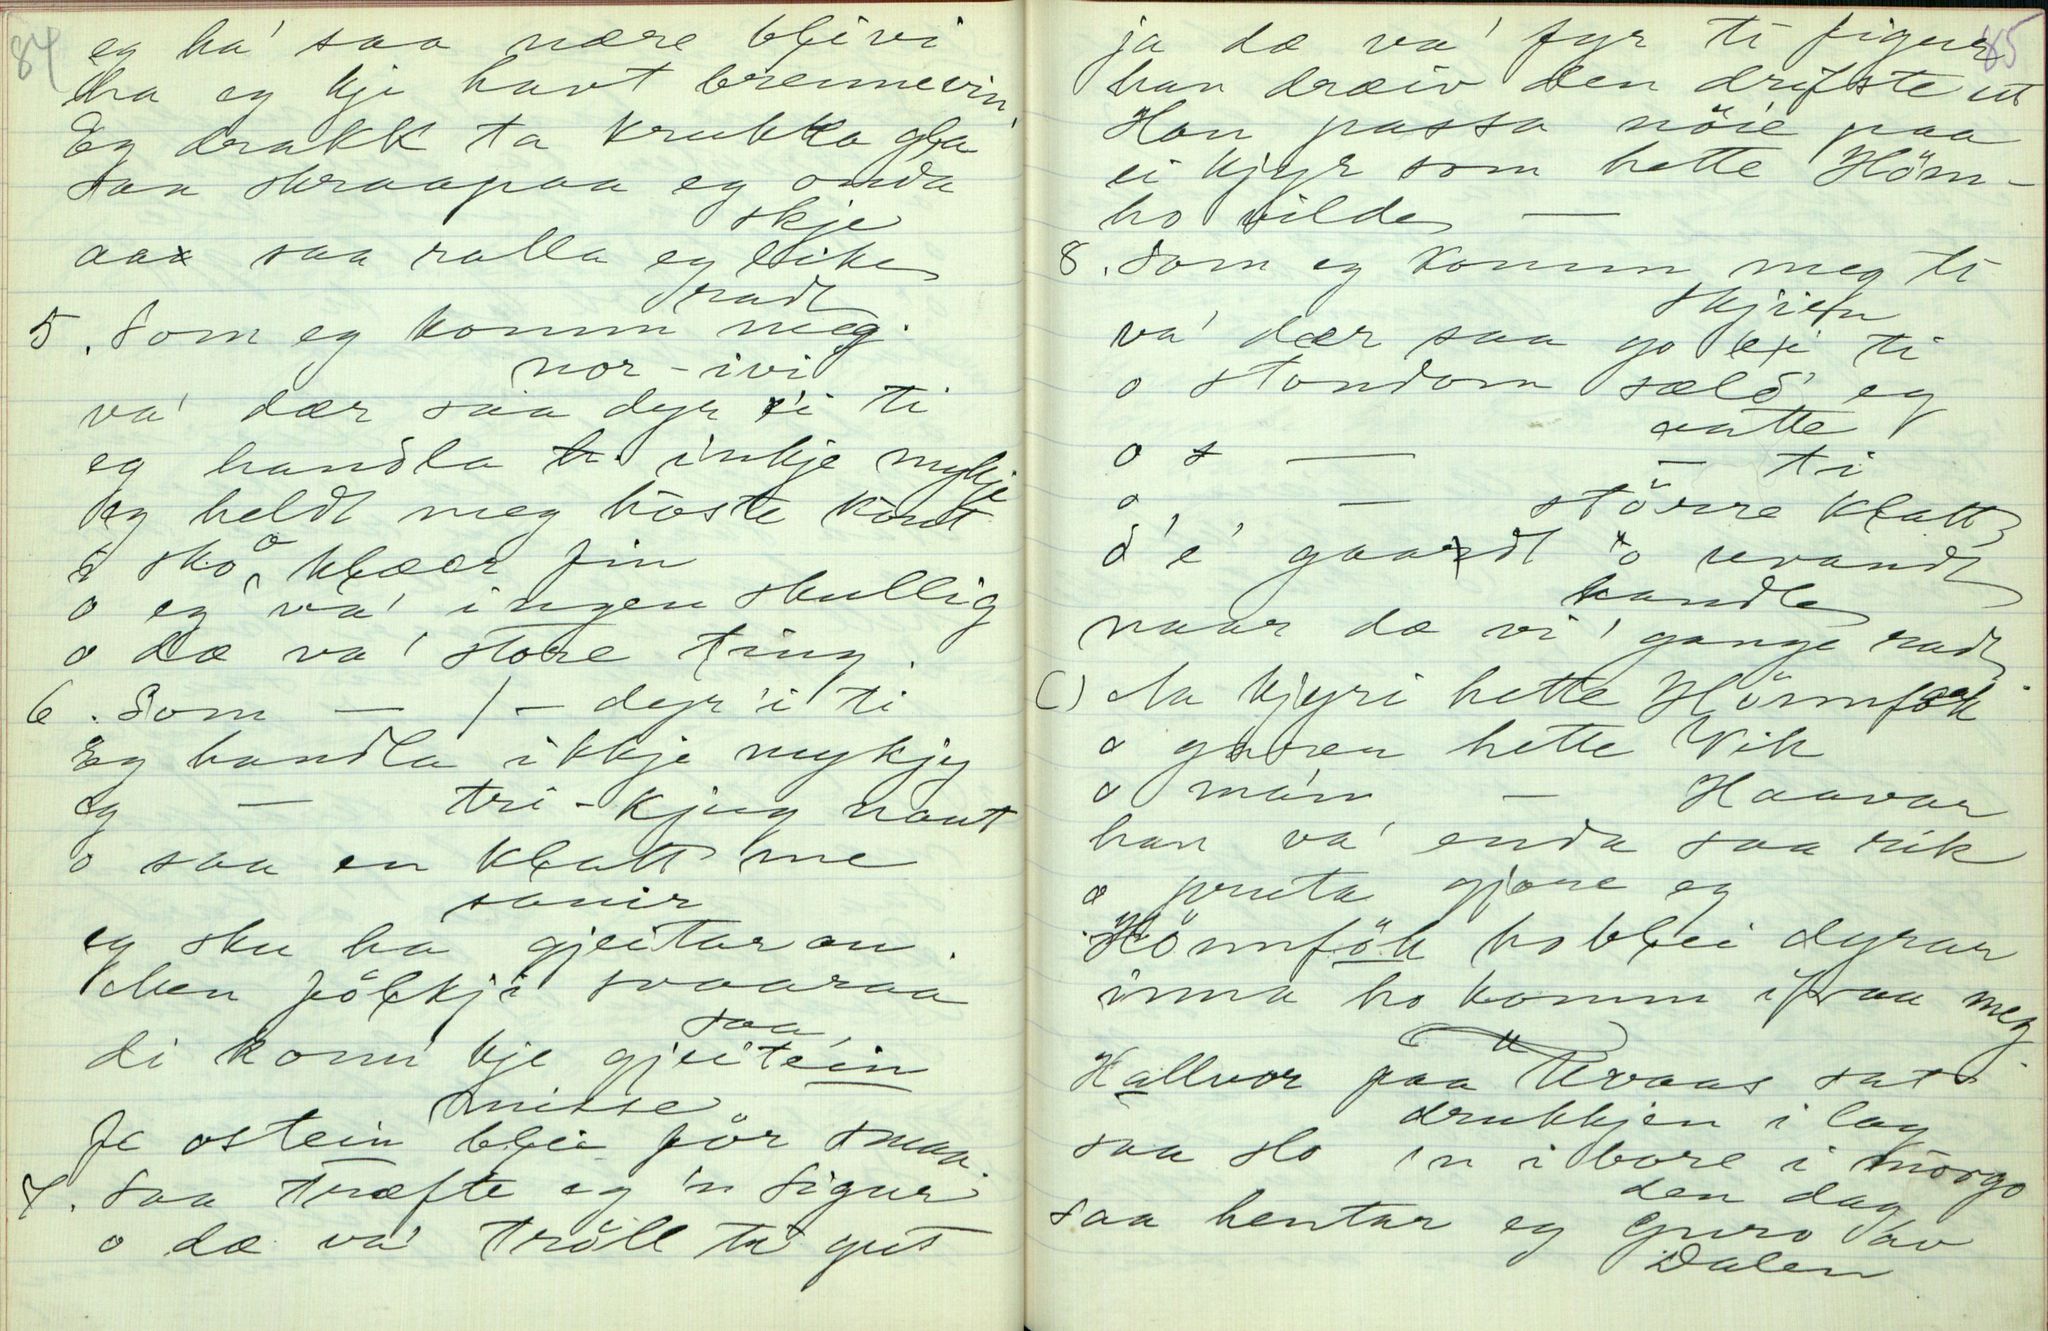 84
eg ha' saa nære blivi
ha eg kje havt brennevin
Eg drakk ta krukka gla
saa skraapaa eg onda
skje
aa saa ralla eg like
radt
5. Som eg komm meg
nor-ivi
va' dær saa dyr ei ti
eg handla inkje mykje
eg heldt meg böste kónt
o sko o klæær fin
o eg va' ingen skullig
o dæ va' store ting.
6. Som — / — dyr 'i ti
Eg handla ikkje mykjy
eg — tri-kjug naut
o saa en klatt me
sauir
eg sku ha gjeitar au.
Men fölkji svaaraa
di komm kje gjeitéin
saa
nisse
Je ostein blei för smaa.
7. Saa træfte eg 'n Sigur
o dæ va' tröll ta gut
85
ja dæ va' fyr ti figur
han dræiv den drifste ut
Han passa nöie paa
ei kjyr som hette Höm-
ho vilde —
8. Som eg komm meg ti
skjien
va' dær saa go ei ti
o stondom sæld' eg
vatte
o s — — ti
o — större klatt
d'e' gaardt o uvandt
handle
naar dæ vi' gange radt
C) Na kjyri hette Hömnfök
o garen hette Vik
o mán — Haavar
han va' enda saa rik
o pruta gjore eg
Hömnfök ho blei dyrar
inna ho komm ifraa meg.
Hallvor paa Kvaas sat
drukkjen i lag
saa slo 'n i bore i morgo
den dag
saa hentar eg Guro av
Dalen